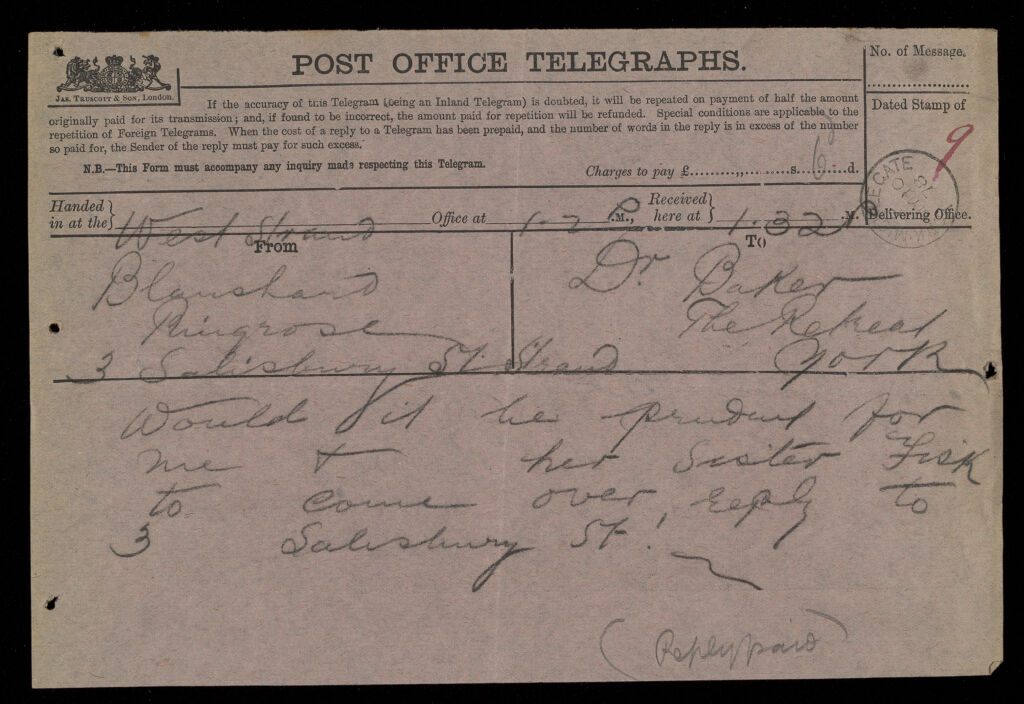 POST OFFICE TELEGRAPHS.
No. of Message.
JAS. TRUSCOTT & SON, London.
If the accuracy of this Telegram (being an Inland Telegram) is doubted, it will be repeated on payment of half the amount
originally paid for its transmission; and, if found to be incorrect, the amount paid for repetition will be refunded. Special conditions are applicable to the
repetition of Foreign Telegrams. When the cost of a reply to a Telegram has been prepaid, and the number of words in the reply is in excess of the number
so paid for, the Sender of the reply must pay for such excess.
Dated Stamp of
9
N.B.—This Form must accompany any inquiry made respecting this Telegram.
Charges to pay £..........,,..........s..........d.
Handed in at the } West Strand Office at 1-2 P .M., Received here at } 1.32 P .M.
Delivering Office.
From
To
Blanshard
Ringrose
3 Salisbury St. Strand
Dr Baker
The Retreat
York
Would it be prudent for
me + her Sister Fisk
to come over, reply to
3 Salisbury St!
(Reply paid)